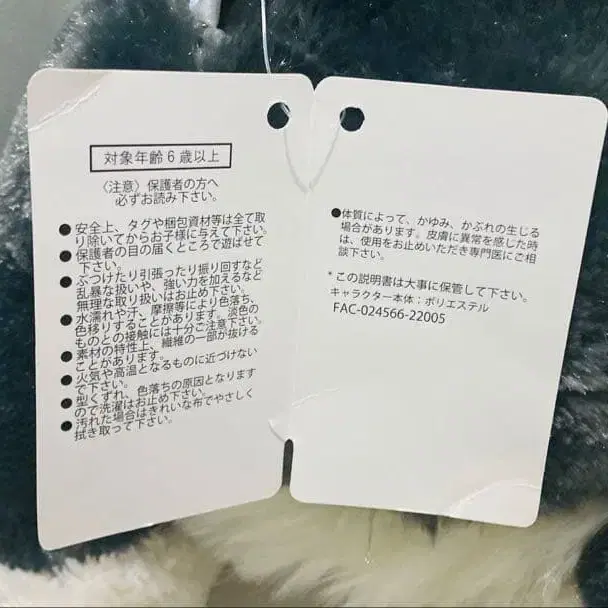 対象年齢6歳以上
〈注意〉保護者の方へ
必ずお読み下さい。
●安全上、タグや梱包資材等は全て取
り除いてからお子様に与えて下さい。
●保護者の目の届くところで遊ばせて
下さい。
●ぶつけたり引張ったり振り回すなど
乱暴な扱いや、強い力を加えるなど
無理な取り扱いはお止め下さい。
●水濡れや汗、摩擦等により色落ち、
色移りすることがあります。淡色の
ものとの接触には十分ご注意下さい。
●素材の特性上、繊維の一部が抜ける
ことがあります。
●火気や高温となるものに近づけない
で下さい。
●型くずれ、色落ちの原因となります
ので洗濯はお止め下さい。
●汚れた場合はきれいな布でやさしく
拭き取って下さい。
●体質によって、かゆみ、かぶれの生じる
場合があります。皮膚に異常を感じた時
は、使用をお止めいただき専門医にご相
談下さい。
*この説明書は大事に保管して下さい。
キャラクター本体：ポリエステル
FAC-024566-22005